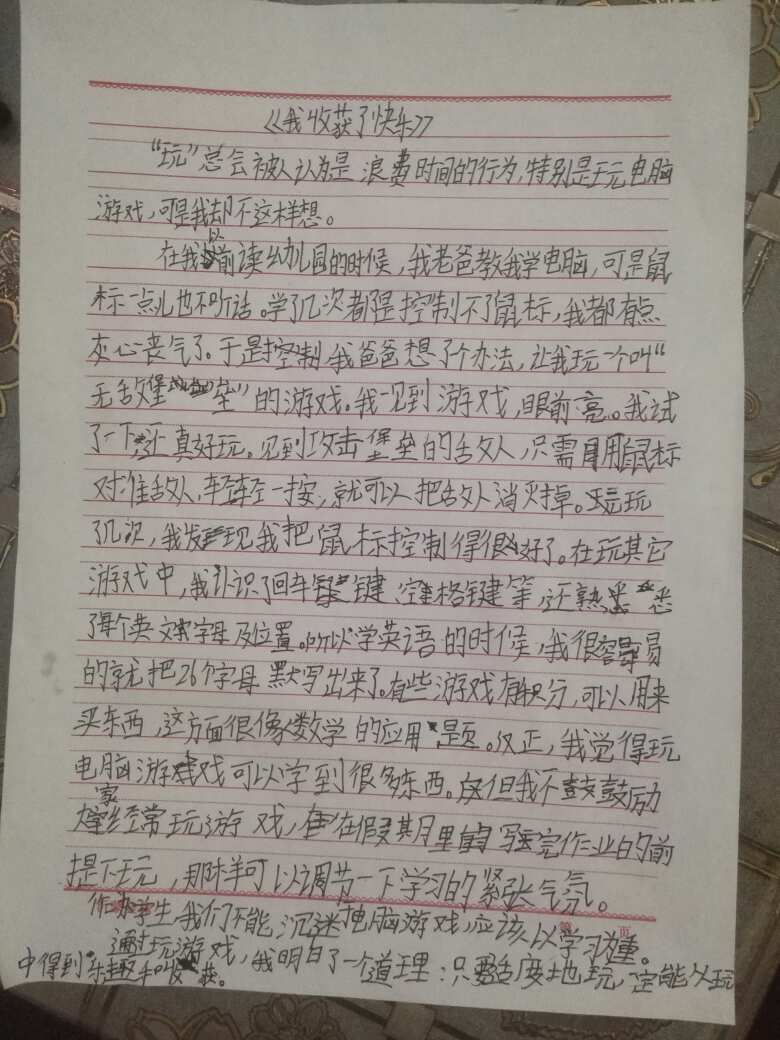 《我收获了快乐》
“玩”总会被人认为是浪费时间的行为，特别是玩电脑
游戏，可是我却不这样想。
在我以前读幼儿园的时候，我老爸教我学电脑，可是鼠
标一点儿也不听话。学了几次都是控制不了鼠标，我都有点
灰心丧气了。于是控制我爸爸想了个办法，让我玩一个叫“
无敌堡垒”的游戏。我一见到游戏，眼前一亮。我试
了一下，还真好玩。见到攻击堡垒的敌人，只需用鼠标
对准敌人，轻轻一按，就可以把敌人消灭掉。玩
了几次，我发现我把鼠标控制得很好了。在玩其它
游戏中，我认识了回车键、空格键等，还熟悉
了每个英文字母及位置。所以学英语的时候，我很容易
的就把26个字母默写出来了。有些游戏有积分，可以用来
买东西，这方面很像数学的应用题。反正，我觉得玩
电脑游戏可以学到很多东西。但我不鼓励
大家经常玩游戏，在假期里写完作业的前
提下玩，那样可以调节一下学习的紧张气氛。
作为学生，我们不能沉迷电脑游戏，应该以学习为重。
通过玩游戏，我明白了一个道理：只要适度地玩，一定能从玩
中得到乐趣和收获。
页